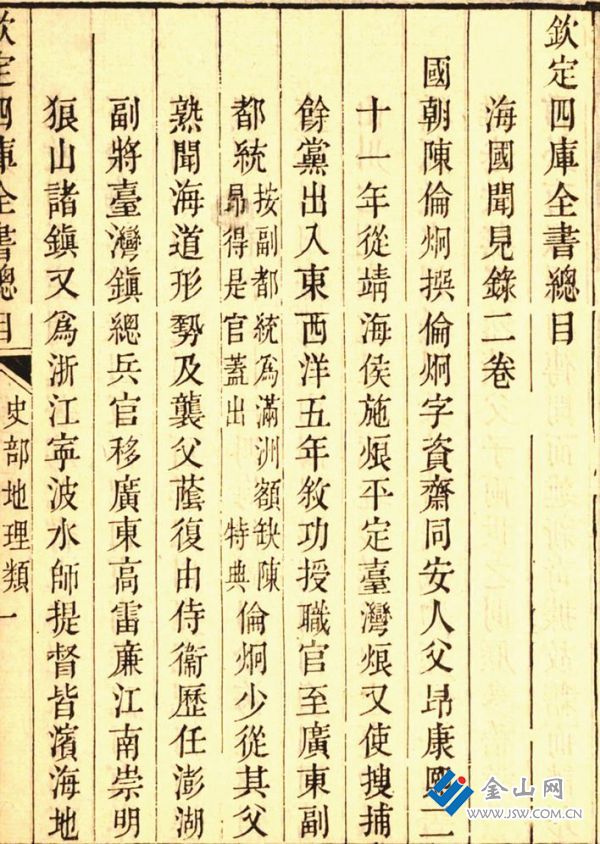 欽定四庫全書總目
海國聞見錄二卷
國朝陳倫炯撰倫炯字資齋同安人父昂康熙二
十一年從靖海侯施烺平定臺灣烺又使搜捕
餘黨出入東西洋五年敘功授職官至廣東副
都統按副都統爲滿洲額缺陳昂得是官蓋出特典倫炯少從其父
熟聞海道形勢及襲父蔭復由侍衞歷任澎湖
副將臺灣鎮總兵官移廣東高雷廉江南崇明
狼山諸鎮又爲浙江寧波水師提督皆濱海地
欽定四庫全書總目 史部地理類一
金山网
www.JSW.com.cn